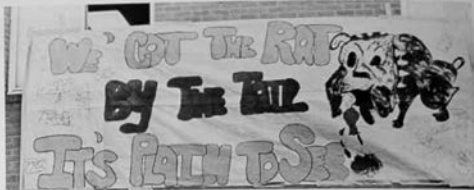 WE' GOT THE RAT
BY THE TAIL
IT'S PLAIN TO SEE